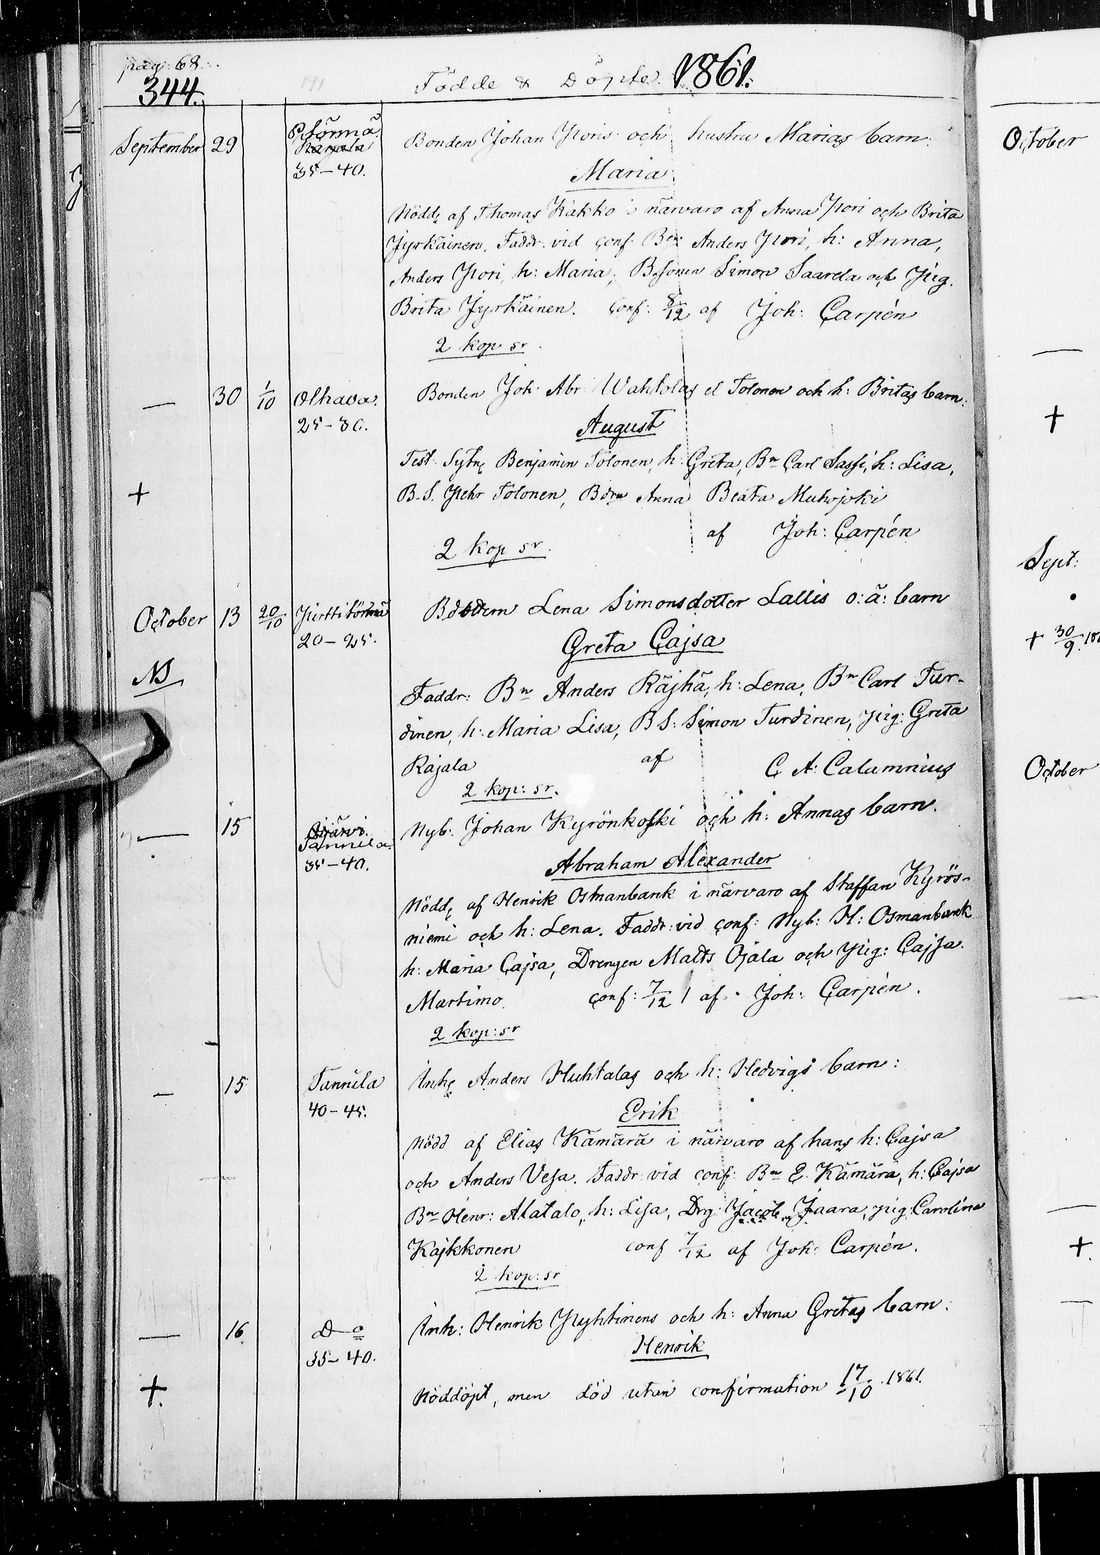 pag: 68.
344.
Födde & Döpte 1861.
September 29
Törmä
35-40.
Bonden Johan Yloris och hustru Marias barn.
Maria
Nödd: af Thomas Kakko i närvaro af Anna Ylori och Brita
Jyrkäinen, Faddr. vid conf Bdn Anders Ylori, h: Anna,
Anders Ylori, h: Maria, B.sonen Simon Saarela och Pig.
Brita Jyrkäinen. Conf: 8/12 af Joh: Carpén
2 kop sr
— 30 1/10 Olhava.
25-30.
Bonden Joh. Abr. Wahtolas el Tolonen och h: Britas barn:
August
Test. Sytn: Benjamin Tolonen, h: Greta, Bn Carl Sassi, h: Lisa,
+
B.S. Pehr Tolonen, Bdrn Anna Beata Muhojoki
af Joh: Carpén
2 kop sr.
October 13 20/10
20-25.
Lena Simonsdotter Lallis o: ä: barn
Greta Cajsa
NB
Faddr: Bn Anders Räjhä, h: Lena, Bn Carl Tur-
dinen, h: Maria Lisa, B S: Simon Turdinen, pig: Greta
Rajala af C A: Calamnius
2 kop: sr.
— 15
Tannila
35-40.
Nyb: Johan Kyrönkoski och h: Annas barn.
Abraham Alexander
Nödd: af Henrik Osmanbank i närvaro af Staffan Kyrös-
niemi och h: Lena. Faddr: vid conf: Nyb: H: Osmanbank
h: Maria Cajsa, Drengen Matts Ojala och Pig: Cajsa
Martimo. conf: 7/12 af Joh: Carpén.
2 kop: sr
— 15 Tannila
40-45.
Inh: Anders Huhtalas och h: Hedvigs barn:
Erik
Nödd af Elias Kämärä i närvaro af hans h: Cajsa
och Anders Vesa. Faddr vid conf: Bn E. Kämärä, h: Cajsa
Bn Henr: Alatalo, h: Lisa, Drg Jacob Jaara, pig Carolina
Kajkkonen conf 7/12 af Joh: Carpén.
2 kop: sr
— 16. D o
35-40.
Inh: Henrik Pyhtinens och h: Anna Gretas barn:
Henrik
+
Nöddöpt, men död utan confirmation 17/10 1861.
October
—
+
Sept:
+ 30/9
October
—
+
—